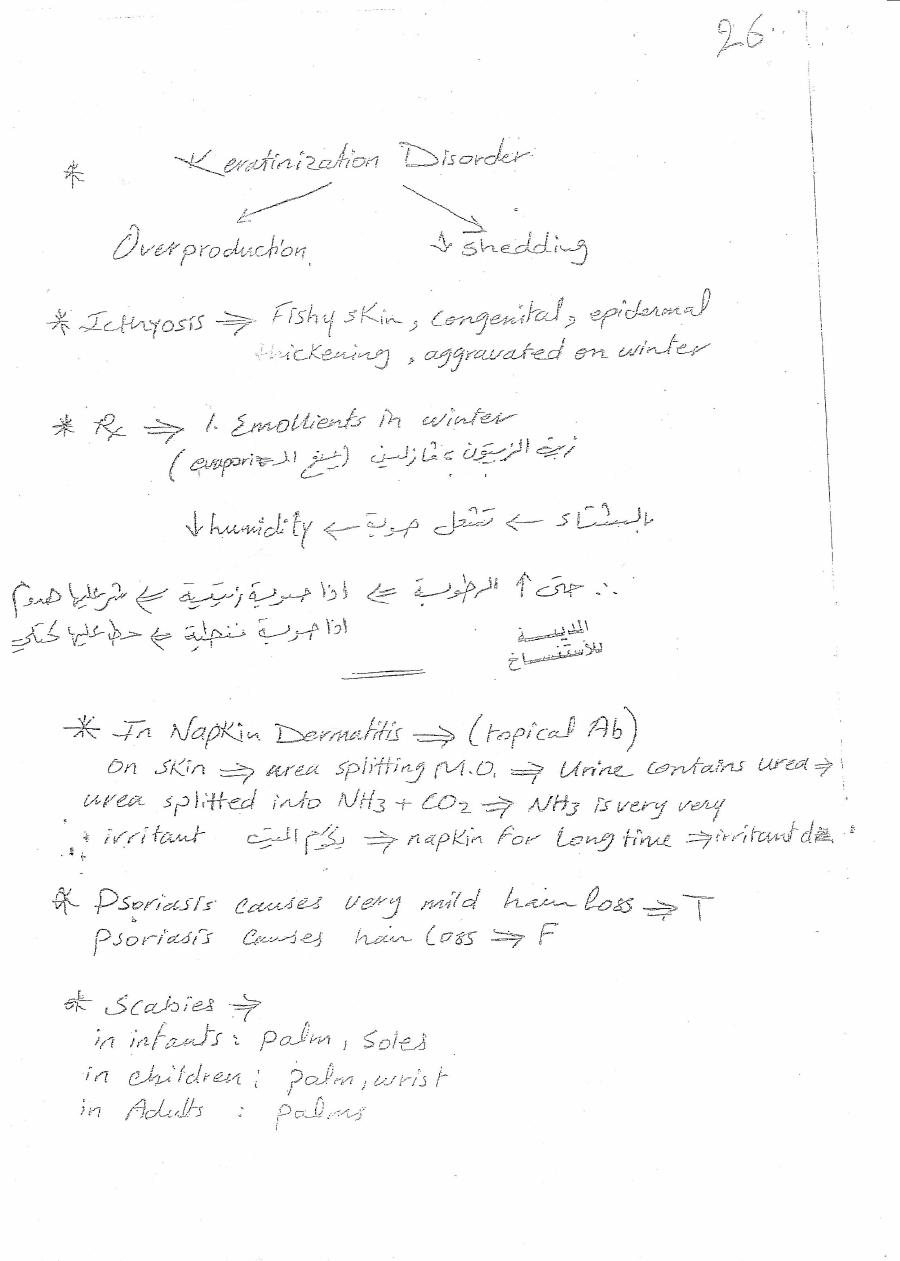 26
* Keratinization Disorder
Overproduction. ↓ shedding
* Icthyosis ⇒ Fishy skin, congenital, epidermal
thickening, aggravated on winter
* Rx ⇒ 1. Emollients in winter
زيت الزيتون، فازلين (يمنع الـ
بالشتاء ← تشعل صوبة ← ↓ humidity
∴ حتى ↑ الرطوبة ⇐ اذا صوبة زيتية ⇐ شر عليها هدوم
اذا صوبة نفطية ⇐ حط عليها كتلي
المدينة
للأستنساخ
* In Napkin Dermatitis ⇒ (topical Ab)
On skin ⇒ urea splitting M.O. ⇒ Urine contains urea ⇒
urea splitted into NH3 + CO2 ⇒ NH3 is very very
irritant ⇒ napkin for long time ⇒ irritant d
* Psoriasis causes very mild hair loss ⇒ T
Psoriasis causes hair loss ⇒ F
* Scabies ⇒
in infants : palm, soles
in children : palm, wrist
in Adults : palms